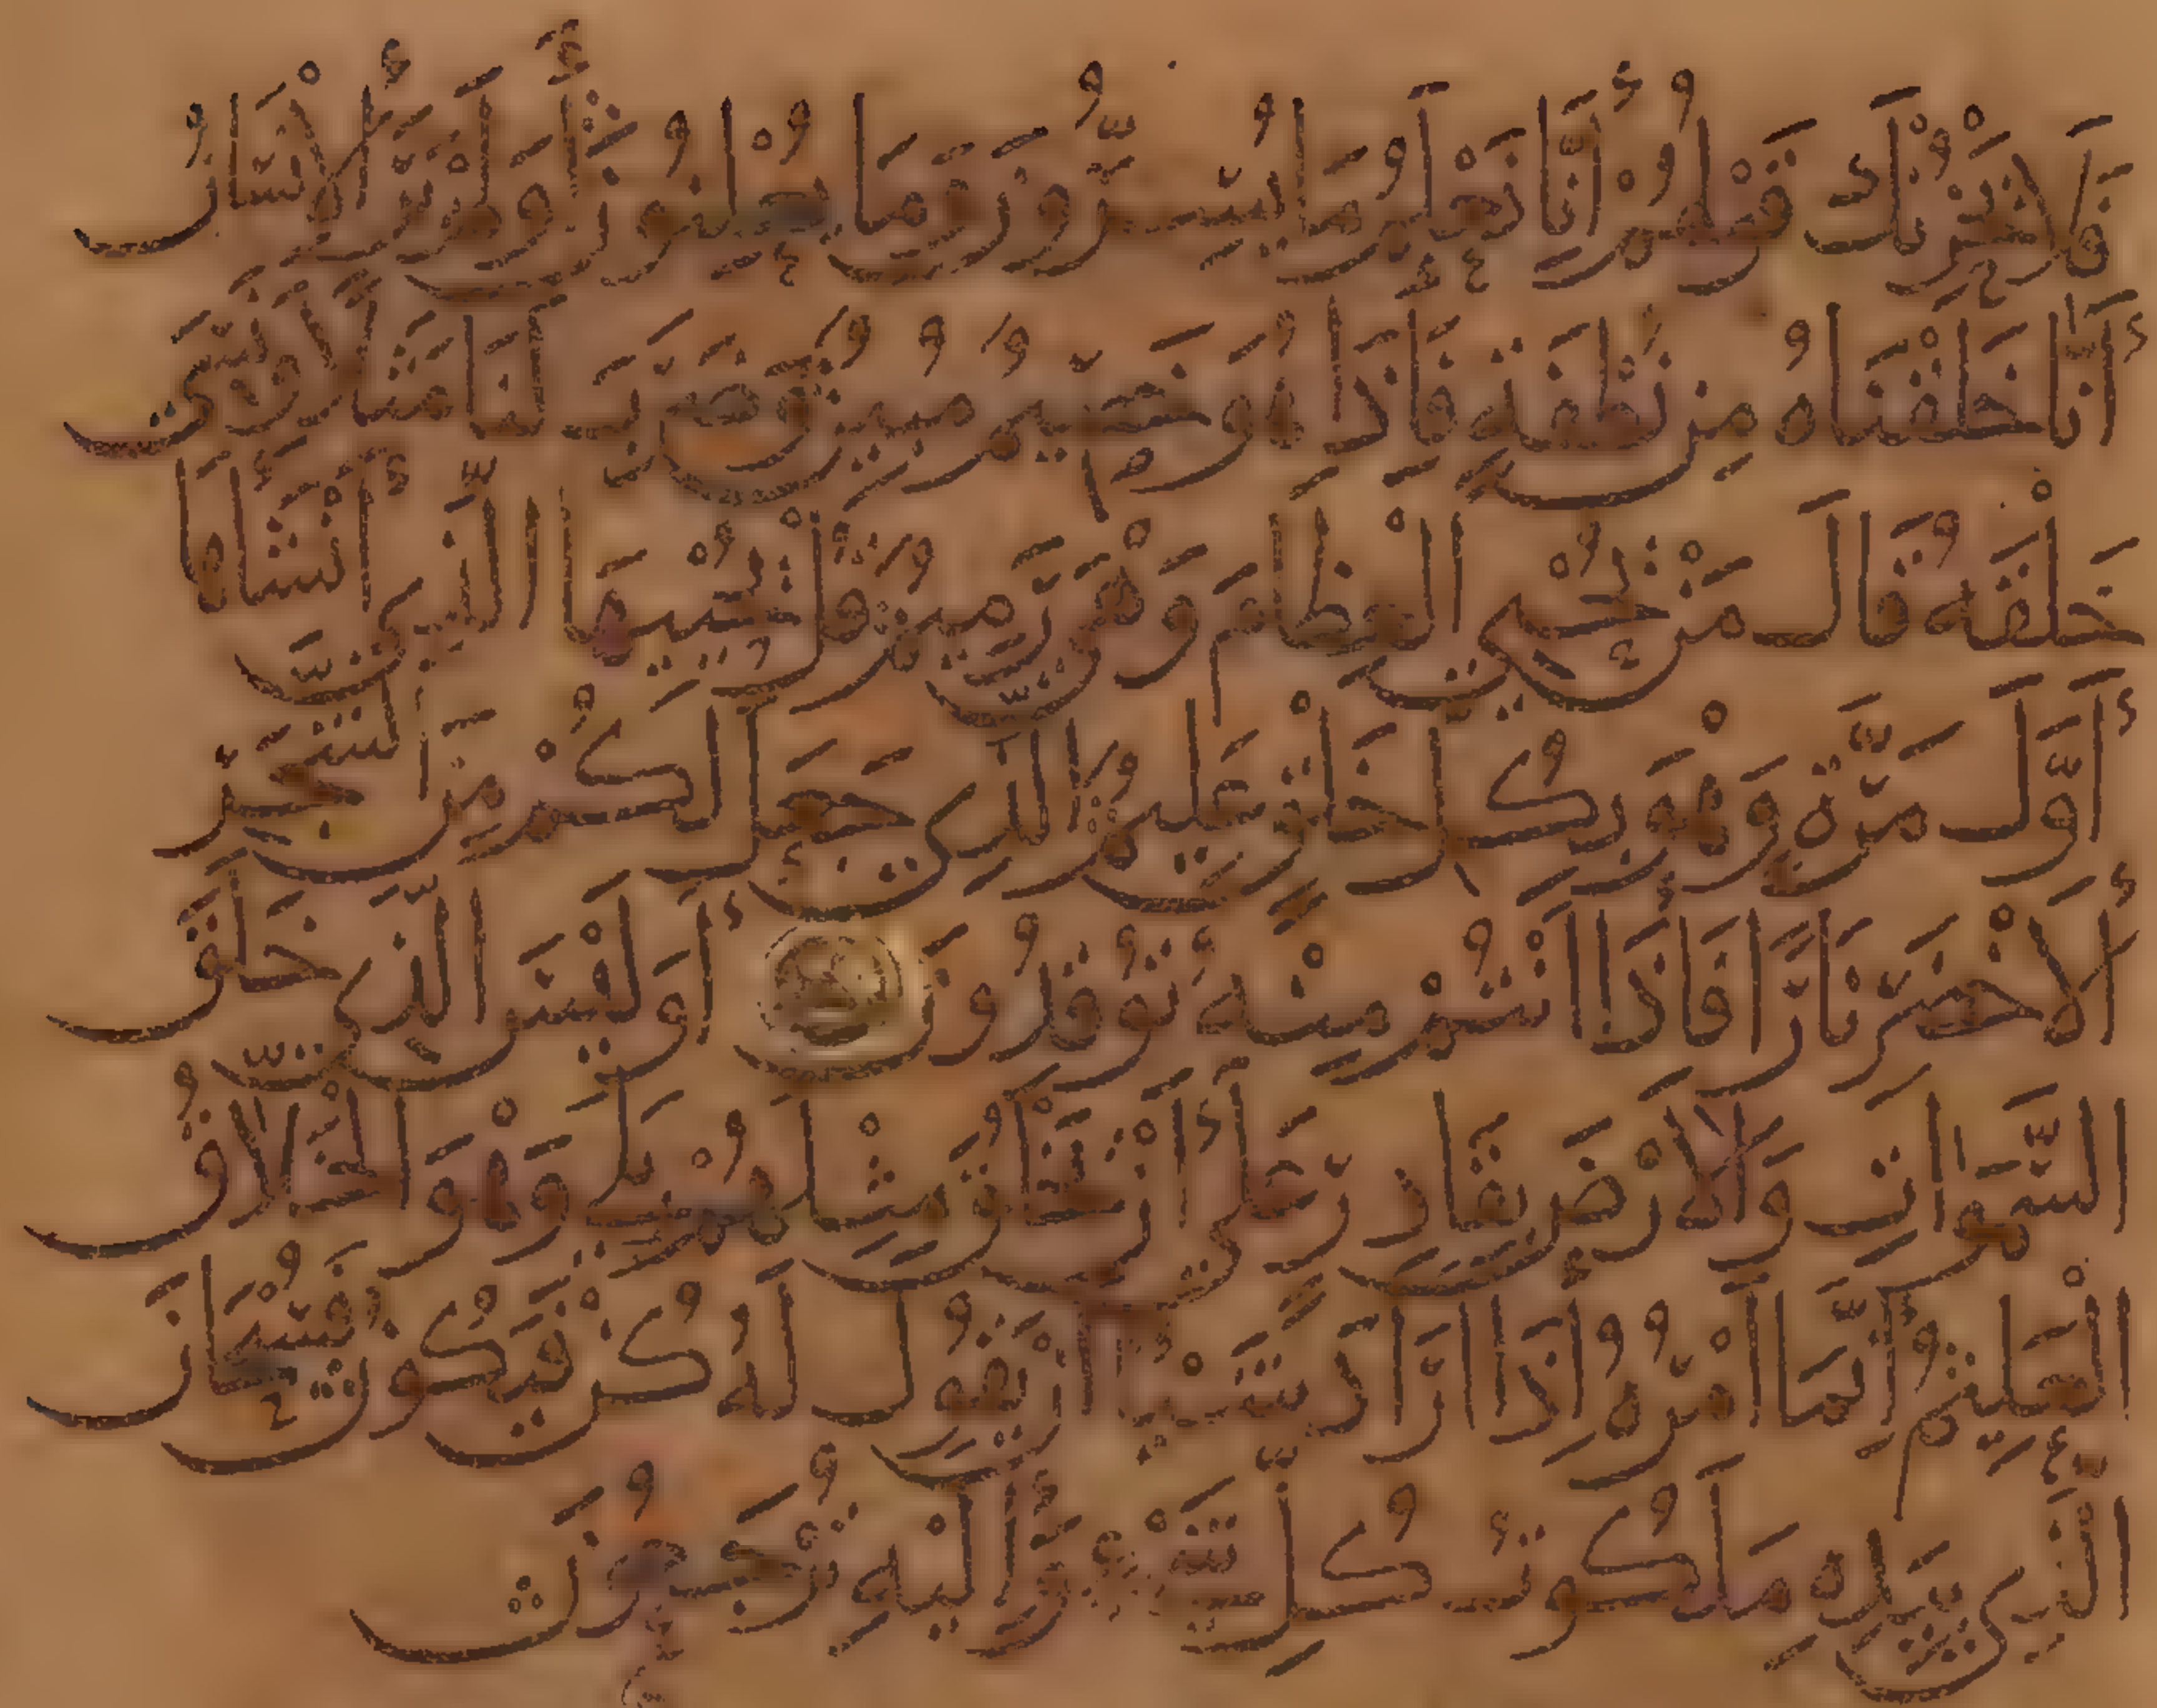 فَلَا يَحْزُنْكَ قَوْلُهُمْ إِنَّا نَعْلَمُ مَا يُسِرُّونَ وَمَا يُعْلِنُونَ أَوَلَمْ يَرَ الْإِنْسَانُ
أَنَّا خَلَقْنَاهُ مِنْ نُطْفَةٍ فَإِذَا هُوَ خَصِيمٌ مُبِينٌ وَضَرَبَ لَنَا مَثَلًا وَنَسِيَ
خَلْقَهُ قَالَ مَنْ يُحْيِي الْعِظَامَ وَهْيَ رَمِيمٌ قُلْ يُحْيِيهَا الَّذِي أَنْشَأَهَا
أَوَّلَ مَرَّةٍ وَهْوَ بِكُلِّ خَلْقٍ عَلِيمٌ الَّذِي جَعَلَ لَكُمْ مِنَ الشَّجَرِ
الْأَخْضَرِ نَارًا فَإِذَا أَنْتُمْ مِنْهُ تُوقِدُونَ أَوَلَيْسَ الَّذِي خَلَقَ
السَّمَوَاتِ وَالْأَرْضَ بِقَادِرٍ عَلَى أَنْ يَخْلُقَ مِثْلَهُمْ بَلَى وَهْوَ الْخَلَّاقُ
الْعَلِيمُ إِنَّمَا أَمْرُهُ إِذَا أَرَادَ شَيْئًا أَنْ يَقُولَ لَهُ كُنْ فَيَكُونُ فَسُبْحَانَ
الَّذِي بِيَدِهِ مَلَكُوتُ كُلِّ شَيْءٍ وَإِلَيْهِ تُرْجَعُونَ